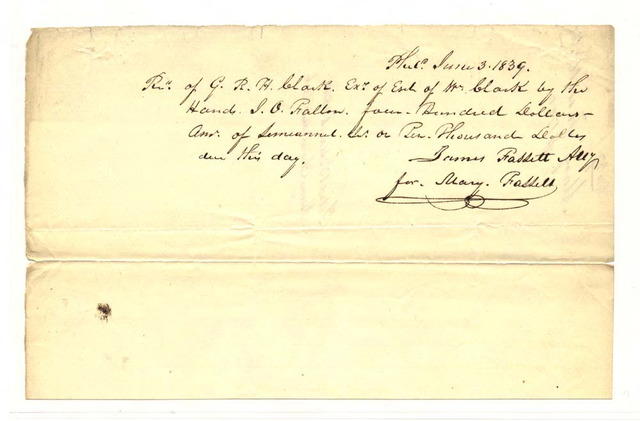 Phila. June 3. 1839.
Rec. of G. R. H. Clark. Exr. of Est of Wm Clark by the
Hands. of four Hundred Dollars-
Amt. of Semiannul. Int. on Thousand Dollrs
due this day. James Fassett Atty
for. Mary. Fassett